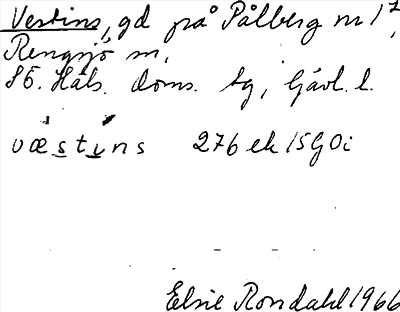 Vestins, gd på Pålberg nr 1²,
Rengsjö sn,
Sö. Häls. doms. tg, Gävl. l.
væstins 276 ek 15G0i
Elsie Rondahl 1966